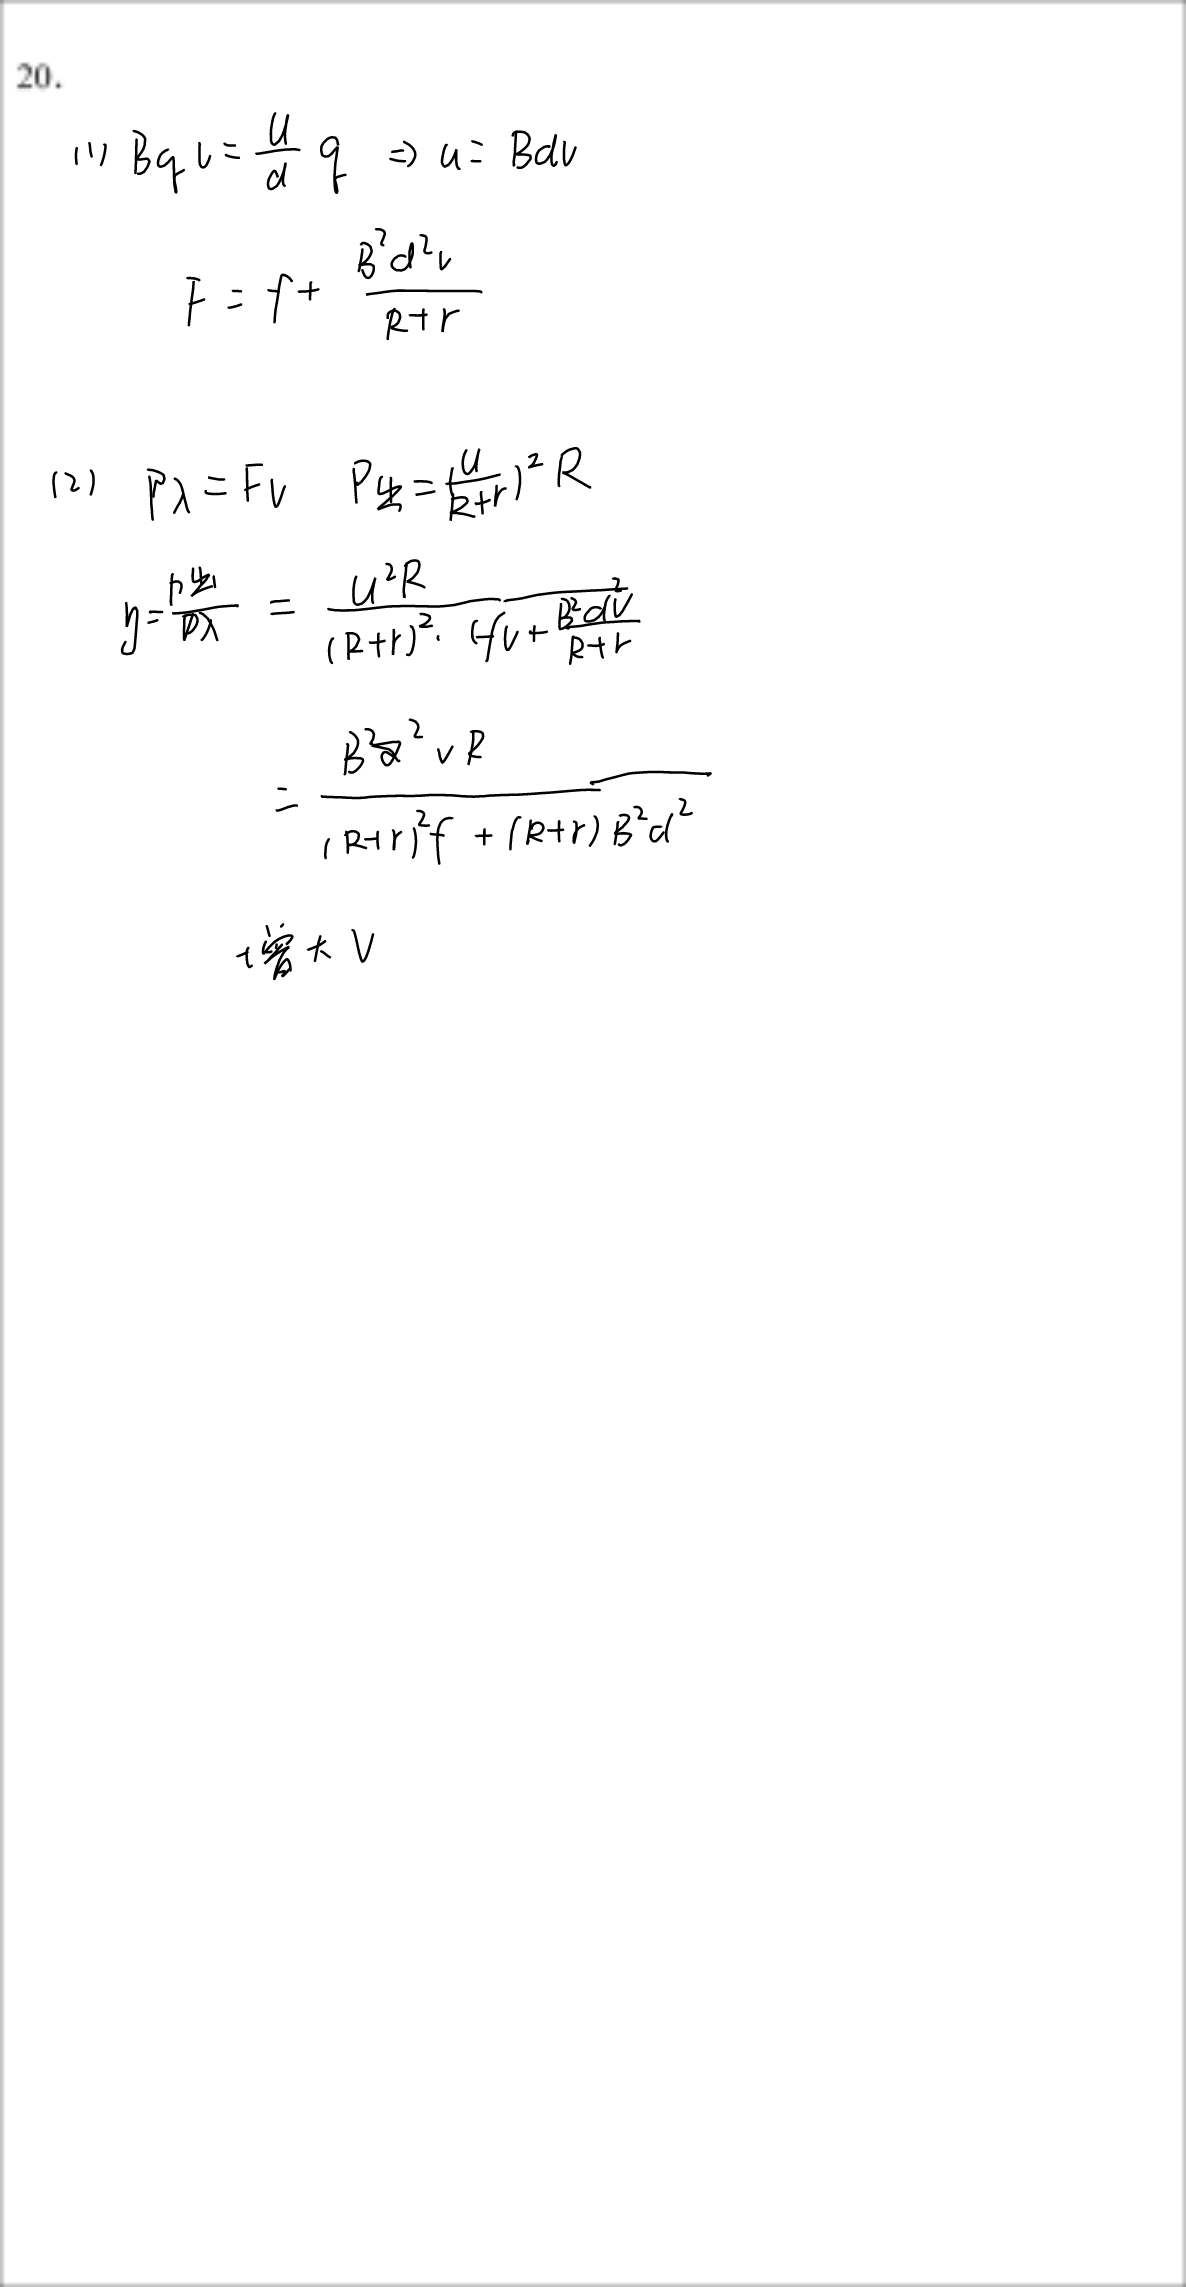 20.
(1) Bqv = U/d q ⇒ u = Bdv
F = f + B²d²v/(R+r)
(2) P入 = Fv P出 = (U/(R+r))² R
η = P出/P入 = U²R/((R+r)²·(fv + B²d²v²/(R+r)
= B²d²vR/((R+r)²f + (R+r)B²d²
增大 V